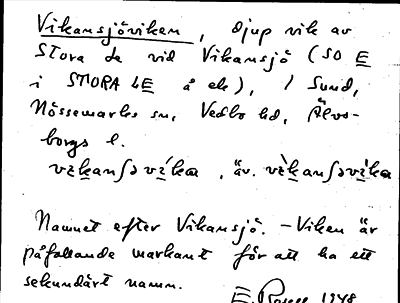 Vikansjöviken, djup vik av
Stora Le vid Vikansjö (SO E
i STORA LE å ek), / Sund,
Nössemarks sn, Vedbo hd, Älvs-
borgs l.
vɩkanʃøvi´ka, äv. vɩ`kanʃøvi`ka
Namnet efter Vikansjö. - Viken är
påfallande markant för att ha ett
sekundärt namn.
E. 1948